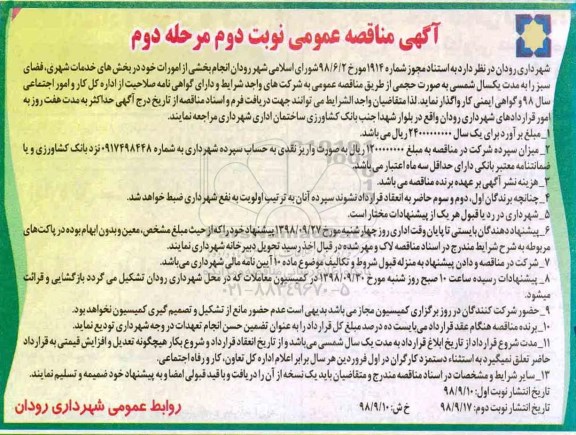 آگهی مناقصه عمومی نوبت دوم مرحله دوم
شهرداری رودان در نظر دارد به استناد مجوز شماره ۱۹۱۴ مورخ ۹۸/۶/۲ شورای اسلامی شهر رودان انجام بخشی از امورات خود در بخش های خدمات شهری، فضای
سبز را به مدت یکسال شمسی به صورت حجمی از طریق مناقصه عمومی به شرکت های واجد شرایط و دارای گواهی نامه صلاحیت از اداره کل کار و امور اجتماعی
سال ۹۸ و گواهی ایمنی کار واگذار نماید. لذا متقاضیان واجد الشرایط می توانند جهت دریافت فرم و اسناد مناقصه از تاریخ درج آگهی حداکثر به مدت هفت روز به
امور قراردادهای شهرداری رودان واقع در بلوار شهدا جنب بانک کشاورزی ساختمان اداری شهرداری مراجعه نمایند.
۱_مبلغ برآورد برای یک سال ۲۴۰۰۰۰۰۰۰۰۰ ریال می باشد.
۲_میزان سپرده شرکت در مناقصه به مبلغ ۱۲۰۰۰۰۰۰۰۰ ریال به صورت واریز نقدی به حساب سپرده شهرداری به شماره ۰۹۱۷۴۹۸۴۴۸ نزد بانک کشاورزی و یا
ضمانتنامه معتبر بانکی دارای حداقل سه ماه اعتبار می باشد.
۳_هزینه نشر آگهی بر عهده برنده مناقصه می باشد.
۴_چنانچه برندگان اول، دوم و سوم حاضر به انعقاد قرارداد نشوند سپرده آنان به ترتیب اولویت به نفع شهرداری ضبط خواهد شد.
۵_شهرداری در رد یا قبول هر یک از پیشنهادات مختار است.
۶_پیشنهاد دهندگان بایستی تا پایان وقت اداری روز چهارشنبه مورخ ۱۳۹۸/۰۹/۲۷ پیشنهاد خود را که از حیث مبلغ مشخص، معین و بدون ابهام بوده در پاکت های
مربوطه به شرح شرایط مندرج در اسناد مناقصه لاک و مهر شده در قبال اخذ رسید تحویل دبیرخانه شهرداری نمایند.
۷_شرکت در مناقصه و دادن پیشنهاد به منزله قبول شروط و تکالیف موضوع ماده ۱۰ آیین نامه مالی شهرداری می باشد.
۸_پیشنهادات رسیده ساعت ۱۰ صبح روز شنبه مورخ ۱۳۹۸/۰۹/۳۰ در کمیسیون معاملات که در محل شهرداری رودان تشکیل می گردد بازگشایی و قرائت
میشود.
۹_حضور شرکت کنندگان در روز برگزاری کمیسیون مجاز می باشد بدیهی است عدم حضور مانع از تشکیل و تصمیم گیری کمیسیون نخواهد بود.
۱۰_برنده مناقصه هنگام عقد قرارداد می بایست ده درصد مبلغ کل قرارداد را به عنوان تضمین حسن انجام تعهدات در وجه شهرداری تودیع نماید.
۱۱_مدت شروع قرارداد از تاریخ ابلاغ قرارداد به مدت یک سال شمسی می باشد و از تاریخ انعقاد قرارداد و شروع بکار هیچگونه تعدیل و افزایش قیمتی به قرارداد
حاضر تعلق نمیگیرد به استثناء دستمزد کارگران در اول فروردین هر سال برابر اعلام اداره کل تعاون، کار و رفاه اجتماعی.
۱۳_سایر شرایط و مشخصات در اسناد مناقصه مندرج و متقاضیان باید یک نسخه از آن را دریافت و با قید قبولی امضا و به پیشنهاد خود ضمیمه و تسلیم نمایند.
تاریخ انتشار نوبت اول: ۹۸/۹/۱۰
تاریخ انتشار نوبت دوم: ۹۸/۹/۱۷ خ ش: ۹۸/۹/۱۰
روابط عمومی شهرداری رودان
۰۲۱-۸۸۳۴۹۶۷۰-۵